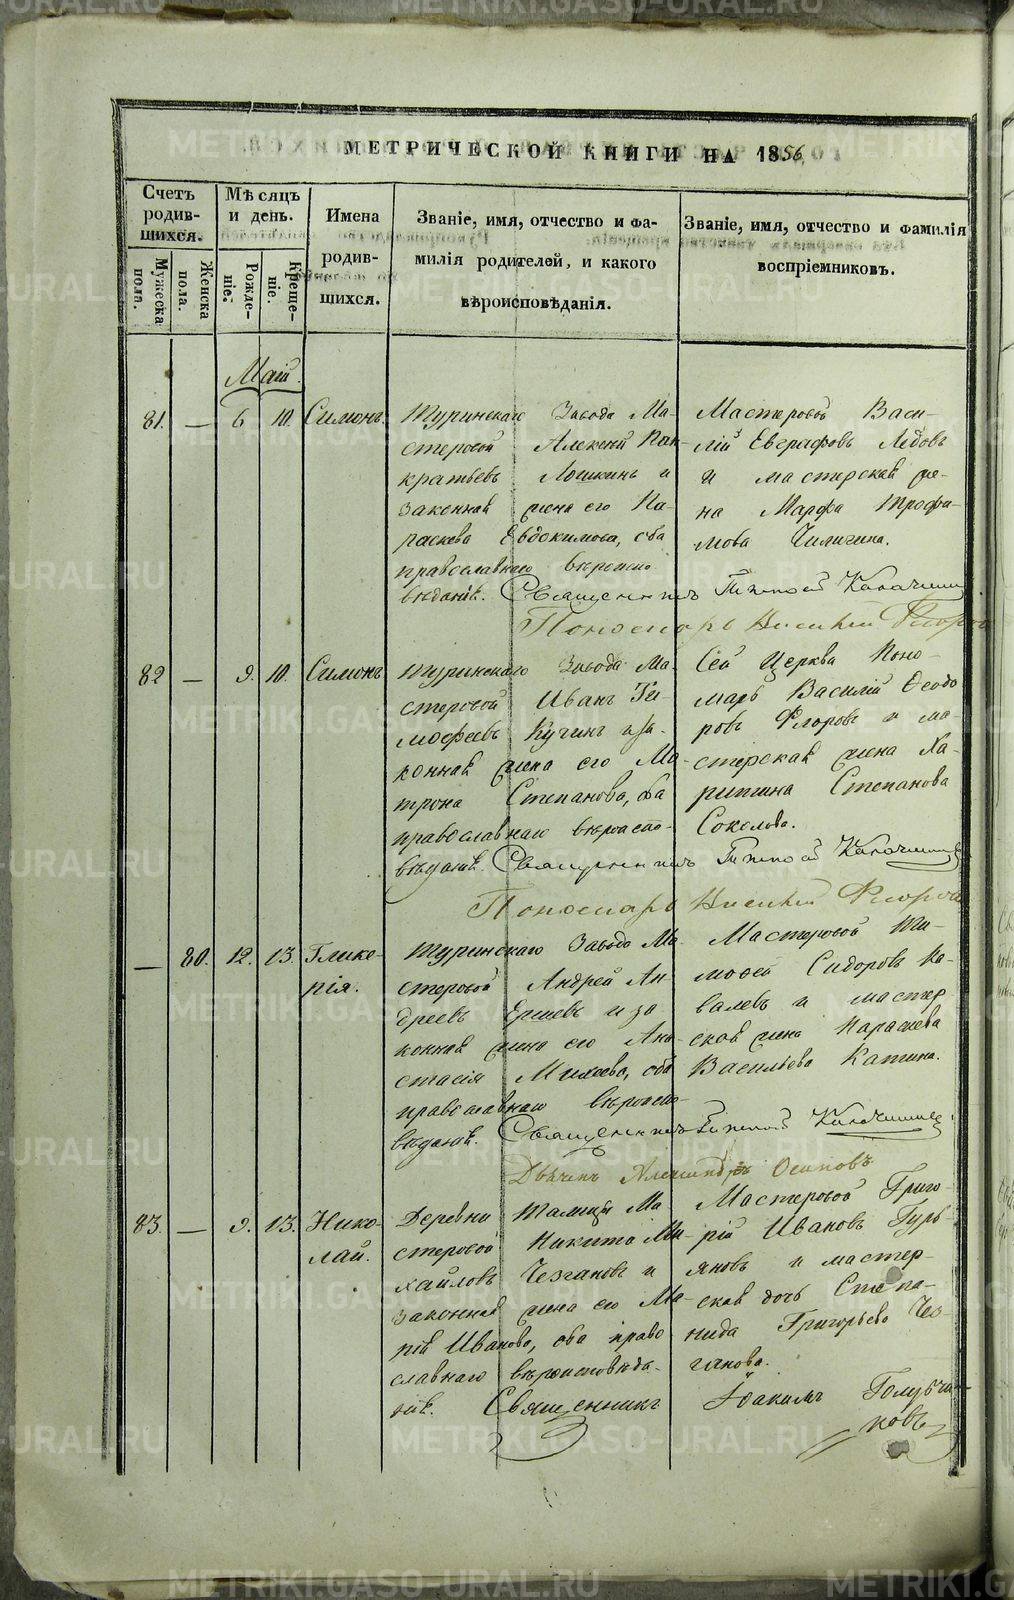 МЕТРИЧЕСКОЙ КНИГИ НА 1856
Счетъ родив-шихся.
Мужеска пола.
Женска пола.
Мѣсяцъ и день.
Рожде-ніе.
Креще-ніе.
Имена родив-шихся.
Званіе, имя, отчество и фа-
милія родителей, и какого
вѣроисповѣданія.
Званіе, имя, отчество и фамилія
воспріемниковъ.
Май.
81. — 6 10. Симонъ.
Туринскаго Завода Ма-
стеровой Алексей Пан-
кратьевъ Лошкинъ и
законная жена его Па-
раскева Евдокимова, оба
православнаго вѣроиспо
вѣданія.
Мастеровой Васи-
лій Евграфовъ Лѣбовъ
и мастерская же-
на Марфа Трофи-
мова Чиличина.
Священникъ Тимофей
Пономарь Василий Флоров
82 — 9. 10. Симонъ
Туринскаго Завода Ма-
стеровой Иванъ Ти-
мофеевъ Кучинъ и за-
конная жена его Ма-
трона Степанова, оба
православнаго вѣроиспо-
вѣданія.
Сей Церкви Поно-
марь Василій Ѳеодо
ровъ Флоровъ и ма-
стерская жена Ха-
ритина Степанова
Соколова.
Священникъ Тимофей
Пономарь Василий Флоров
— 80. 12. 13. Глике-
рія.
Туринскаго Завода Ма-
стеровой Андрей Ан-
дреевъ Ершевъ и за
конная жена его Ана-
стасія Михеева, оба
православнаго вѣроиспо-
вѣданія.
Мастеровой Ти-
мофей Сидоровъ Ко-
валевъ и мастер
ская жена Параскева
Васильева Катина.
Священникъ Тимофей
Дьячекъ Александръ Осиповъ
83. — 9. 13. Нико-
лай.
Деревни Талицы Ма
стеровой Никита Ми-
хайловъ Чезгановъ и
законная жена его Ма-
рія Иванова, оба право
славнаго вѣроисповѣда-
нія.
Мастеровой Григо-
рій Ивановъ Гурь-
яновъ и мастер-
ская дочь Степа-
нида Григорьева Чез-
ганова.
Священникъ Іоакимъ Голубчи-
ковъ
METRIKI.GASO-URAL.RU